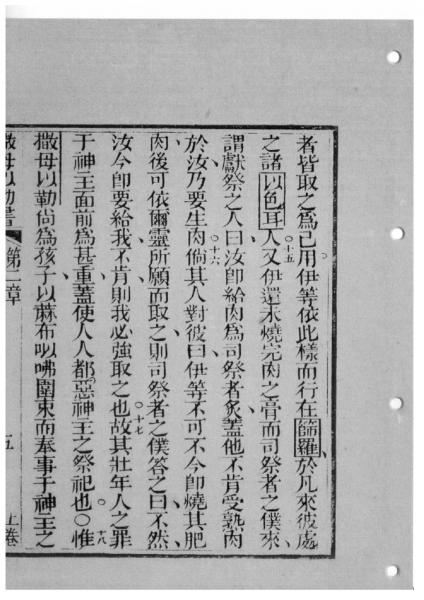 者皆取之爲己用伊等依此樣而行在篩羅於凡來彼處
之諸以色耳人○十五又伊還未燒完肉之膏而司祭者之僕來
謂獻祭之人曰汝即給肉爲司祭者炙蓋他不肯受熟肉
於汝乃要生肉○十六倘其人對彼曰伊等不可不今即燒其肥
肉後可依爾靈所願而取之則司祭者之僕答之曰不然
汝今即要給我不肯則我必強取之也○十七故其壯年人之罪
于神王面前爲甚重蓋使人人都惡神王之祭祀也○○十八惟
撒母以勒尚爲孩子以蔴布㕥咈圍束而奉事于神王之
撒母以勒書 第二章 五 上卷